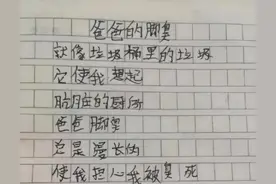 爸爸的脚臭
就像垃圾桶里的垃圾
它使我想起
肮脏的厕所
爸爸脚臭
总是漫长的
使我担心我被臭死